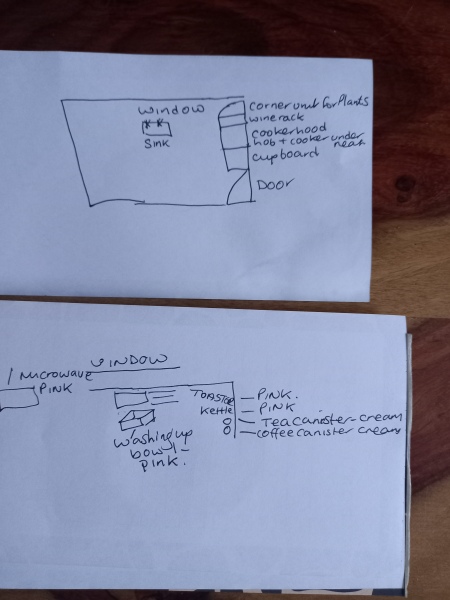 window
Sink
corner unit for Plants
wine rack
cookerhood
hob + cooker under
neat
cupboard
Door
WINDOW
/ Microwave
PINK
TOASTER
kettle
washing up
bowl -
pink.
- PINK.
- PINK
- Tea canister - cream
- coffee canister cream